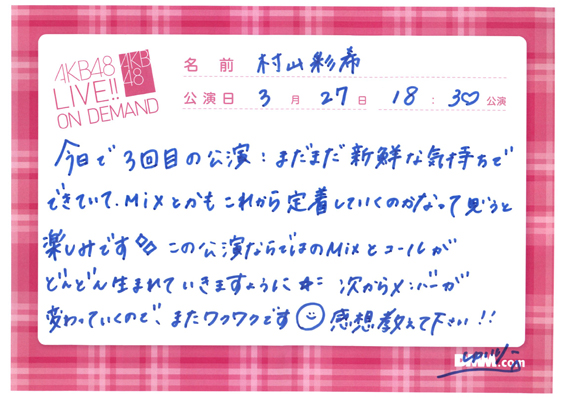 AKB48
LIVE!!
ON DEMAND
AKB
48
名前 村山彩希
公演日 3月27日 18:30公演
今日で3回目の公演!まだまだ新鮮な気持ちで
できていて、MiXとかもこれから定着していくのかなって思うと
楽しみです◇◇ この公演ならではのMixとコールが
どんどん生まれていきますように☆ 次からメンバーが
変わっていくので、またワクワクです☺感想教えて下さい!!
DMM.com